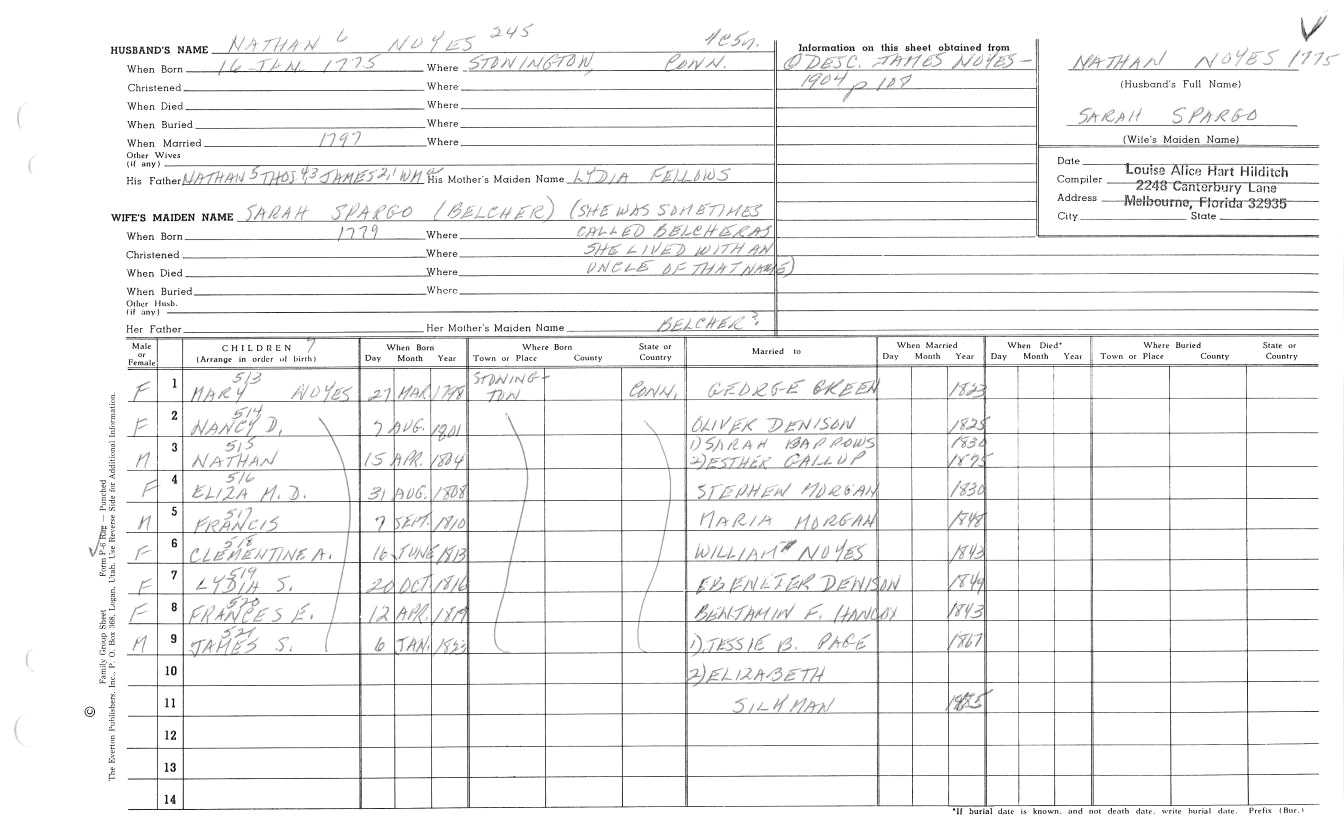 HUSBAND'S NAME NATHAN 6 NOYES 245
When Born 16 JAN. 1775 Where STONINGTON, CONN.
Christened Where
When Died Where
When Buried Where
When Married 1797 Where
Other Wives
(if any)
His Father NATHAN 5 THOS 4,3 JAMES 2,1 WM His Mother's Maiden Name LYDIA FELLOWS
WIFE'S MAIDEN NAME SARAH SPARGO (BELCHER) (SHE WAS SOMETIMES
When Born 1779 Where CALLED BELCHER AS
Christened Where SHE LIVED WITH AN
When Died Where UNCLE OF THAT NAME)
When Buried Where
Other Husb.
(if any)
Her Father Her Mother's Maiden Name BELCHER?
Information on this sheet obtained from
① DESC. JAMES NOYES -
1904 p 107
NATHAN NOYES 1775
(Husband's Full Name)
SARAH SPARGO
(Wife's Maiden Name)
Date
Compiler Louise Alice Hart Hilditch
Address 2248 Canterbury Lane
Melbourne, Florida 32935
City State
Male or Female CHILDREN 7 (Arrange in order of birth) When Born Day Month Year Where Born Town or Place County State or Country Married to When Married Day Month Year When Died* Day Month Year Where Buried Town or Place County State or Country
F 1 513 MARY NOYES 27 MAR. 1798 STONINGTON CONN. GEORGE GREEN 1823
F 2 514 NANCY D. 7 AUG. 1801 OLIVER DENISON 1825
M 3 515 NATHAN 15 APR. 1804 1) SARAH BARROWS 1830
2) ESTHER GALLUP 1875
F 4 516 ELIZA M. D. 31 AUG. 1808 STEPHEN MORGAN 1830
M 5 517 FRANCIS 7 SEPT. 1810 MARIA MORGAN 1848
F 6 518 CLEMENTINE A. 16 JUNE 1813 WILLIAM NOYES 1843
F 7 519 LYDIA S. 20 OCT. 1816 EBENEZER DENISON 1849
F 8 520 FRANCES E. 12 APR. 1819 BENJAMIN F. HANCOX 1843
M 9 521 JAMES S. 6 JAN. 1823 1) JESSIE B. PAGE 1867
10 2) ELIZABETH
11 SILKMAN
12
13
14
*If burial date is known, and not death date, write burial date. Prefix (Bur.)
Family Group Sheet Form P-6 Reg — Punched
© The Everton Publishers, Inc., P. O. Box 368, Logan, Utah. Use Reverse Side for Additional Information.